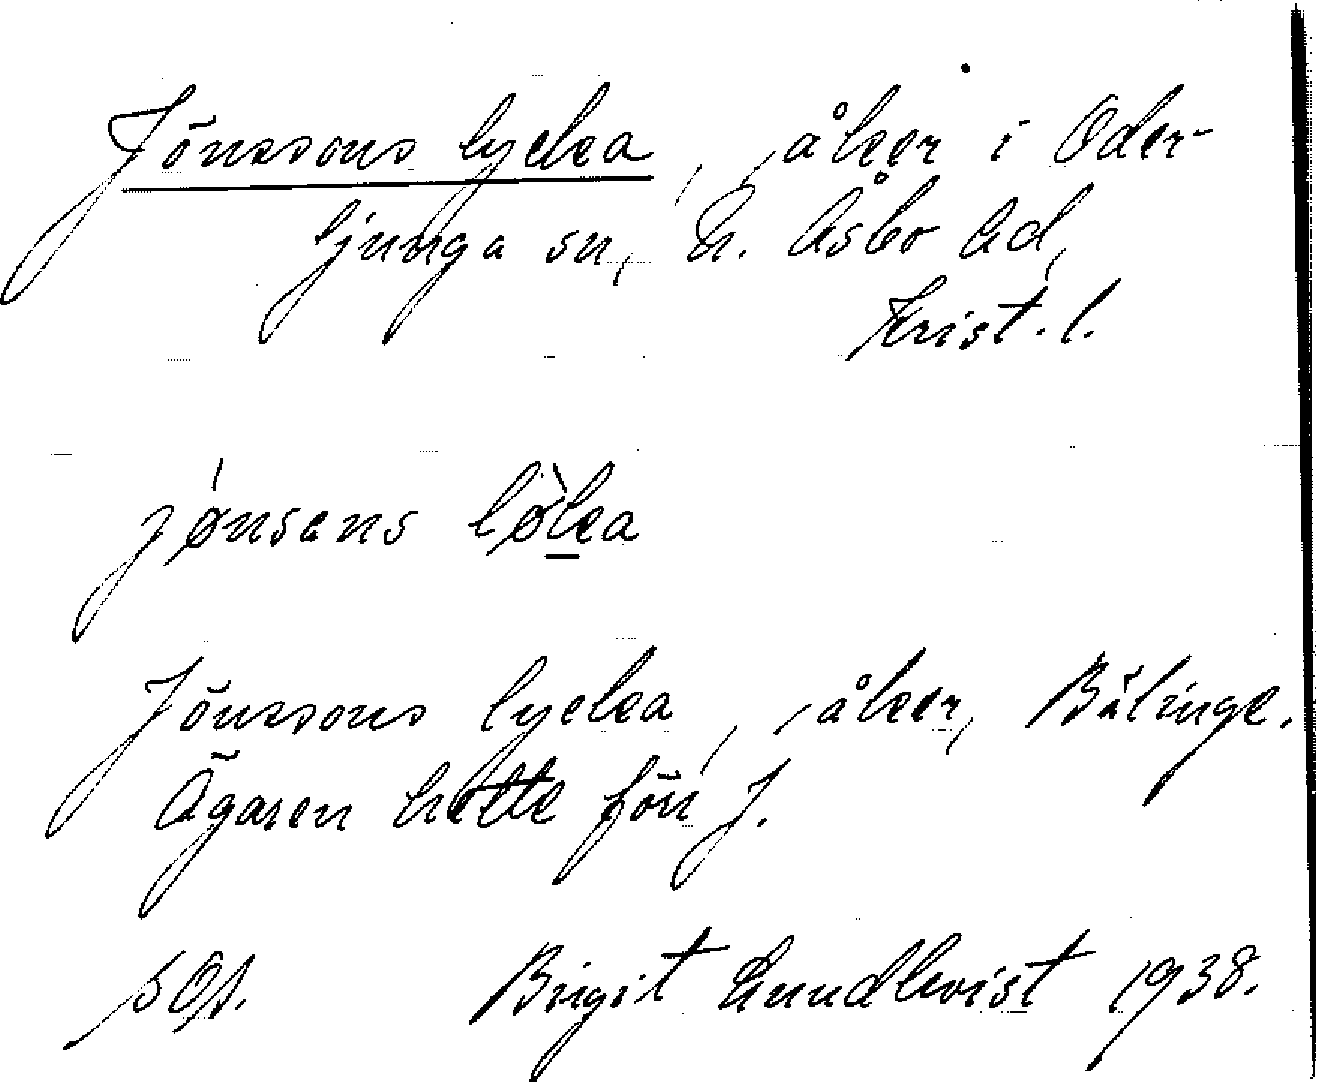 Jönssons lycka, åker i Oder-
ljunga sn, N. Åsbo hd,
Krist. l.
jǿnsens lø̀ka
Jönssons lycka, åker, Bälinge.
Ägaren hette förr J.
Birgit Lundkvist 1938.